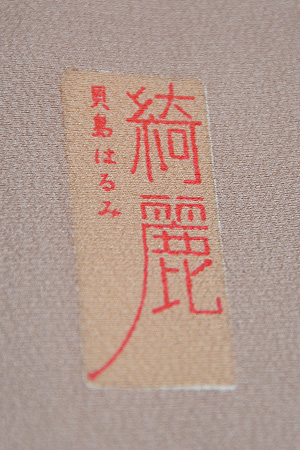 綺麗
貝島はるみ